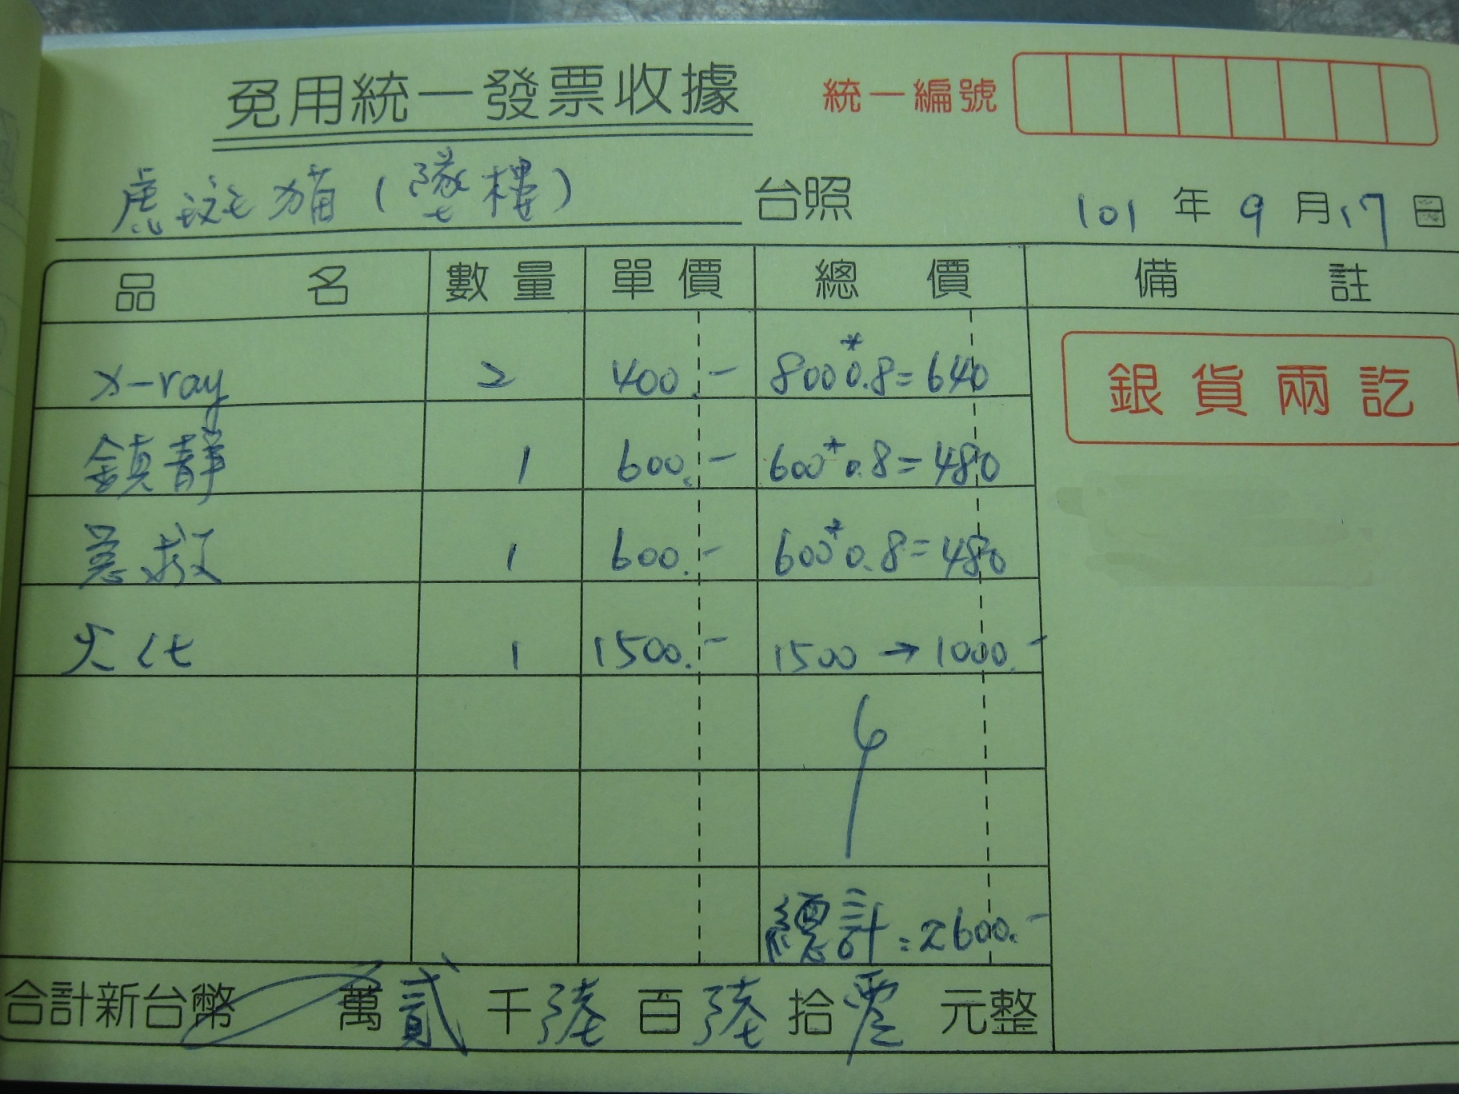 免用統一發票收據 統一編號
虎斑貓(墜樓) 台照 101年9月17日
品名 數量 單價 總價 備註
x-ray 2 400.- 800*0.8=640 銀貨兩訖
鎮靜 1 600.- 600*0.8=480
急救 1 600.- 600*0.8=480
火化 1 1500.- 1500→1000.-
總計:2600.-
合計新台幣 萬貳千陸百陸拾零元整